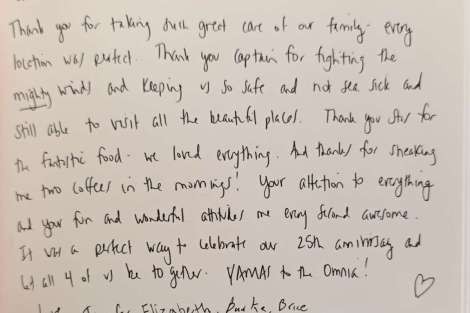 Thank you for taking such great care of our family - every
location was perfect. Thank you Captain for fighting the
mighty winds and keeping us so safe and not sea sick and
still able to visit all the beautiful places. Thank you for
the fantastic food - we loved everything. And thanks for sneaking
me two coffees in the mornings! Your attention to everything
and your fun and wonderful attitudes me every second awesome.
It was a perfect way to celebrate our 25th anniversary and
let all 4 of us be together. YAMAS to the Omnia!
Elizabeth, Burke, Brice